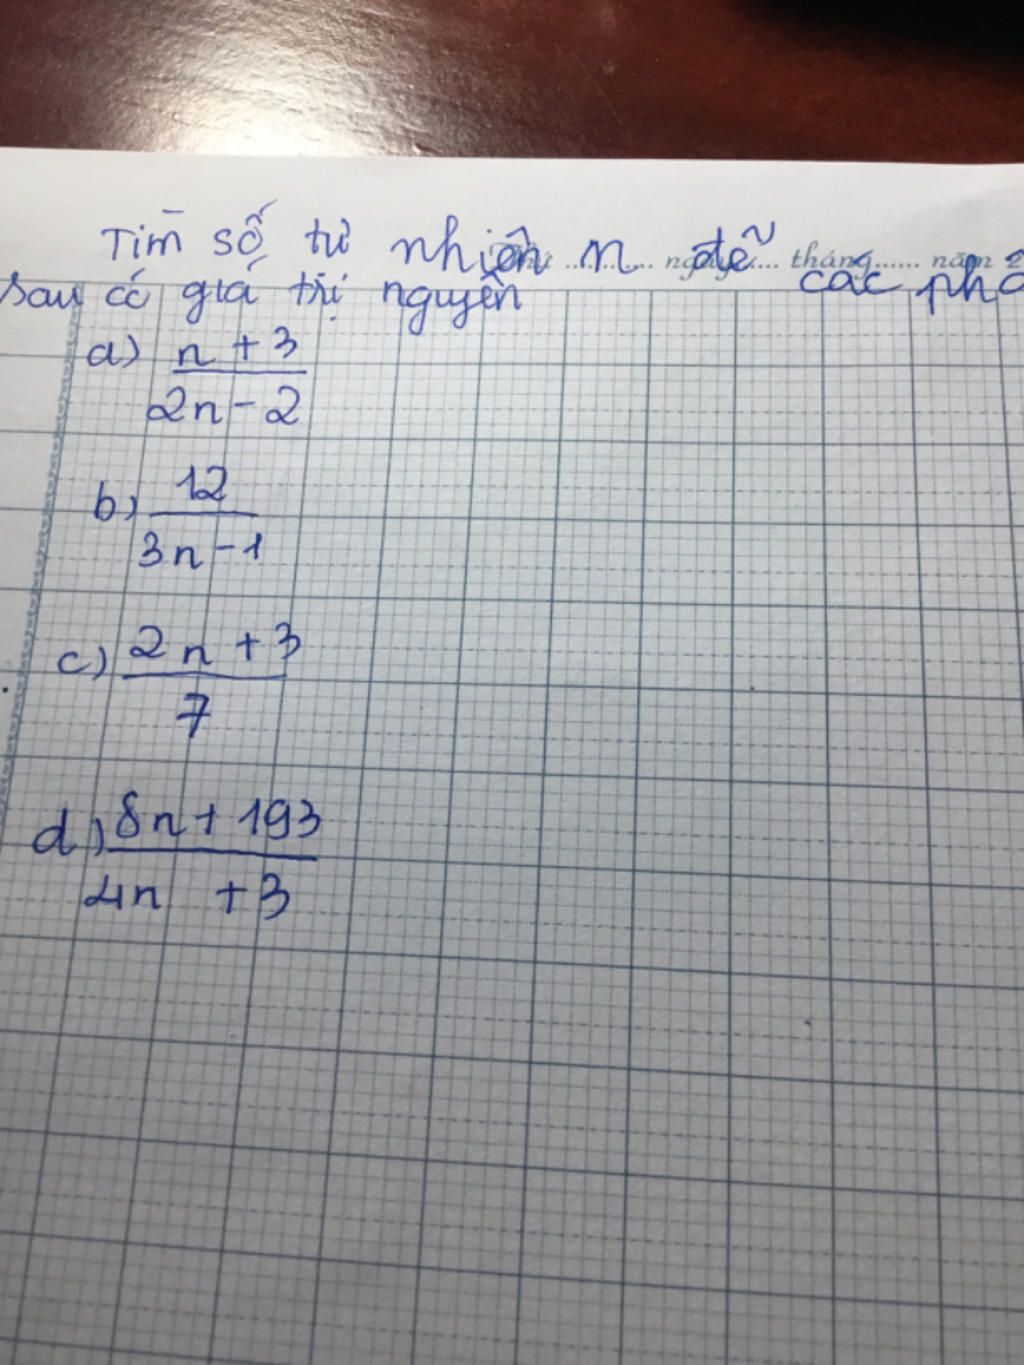 Tìm số tự nhiên n để các phâ
sau có giá trị nguyên
tháng...... năm 2
a) n + 3
2n - 2
b) 12
3n - 1
c) 2n + 3
7
d) 8n + 193
4n + 3